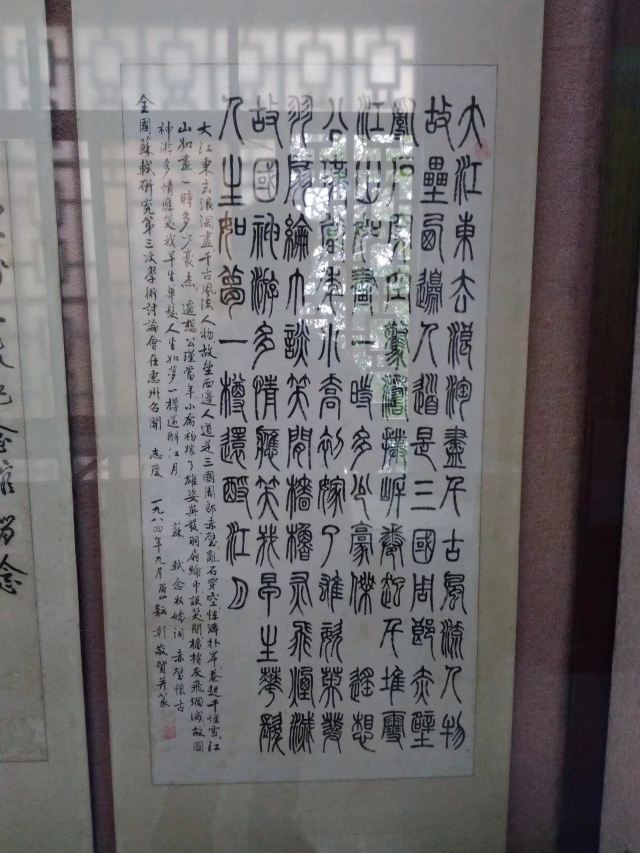 大江東去浪淘盡千古風流人物
故壘西邊人道是三國周郎赤壁
亂石穿空驚濤拍岸卷起千堆雪
江山如畫一時多少豪傑 遙想
公瑾當年小喬初嫁了雄姿英發
羽扇綸巾談笑間檣櫓灰飛煙滅
故國神游多情應笑我早生華髮
人生如夢一樽還酹江月
大江東去浪淘盡千古風流人物故壘西邊人道是三國周郎赤壁亂石穿空驚濤拍岸卷起千堆雪江
山如畫一時多少豪杰 遙想公瑾當年小喬初嫁了雄姿英發羽扇綸巾談笑間檣櫓灰飛烟滅故國
神游多情應笑我早生華髮人生如夢一樽還酹江月 蘇軾念奴嬌詞 赤壁懷古
全國蘇軾研究第三次學術討論會在惠州召開 志慶 一九八四年九月 敬賀并篆
紀念館留念